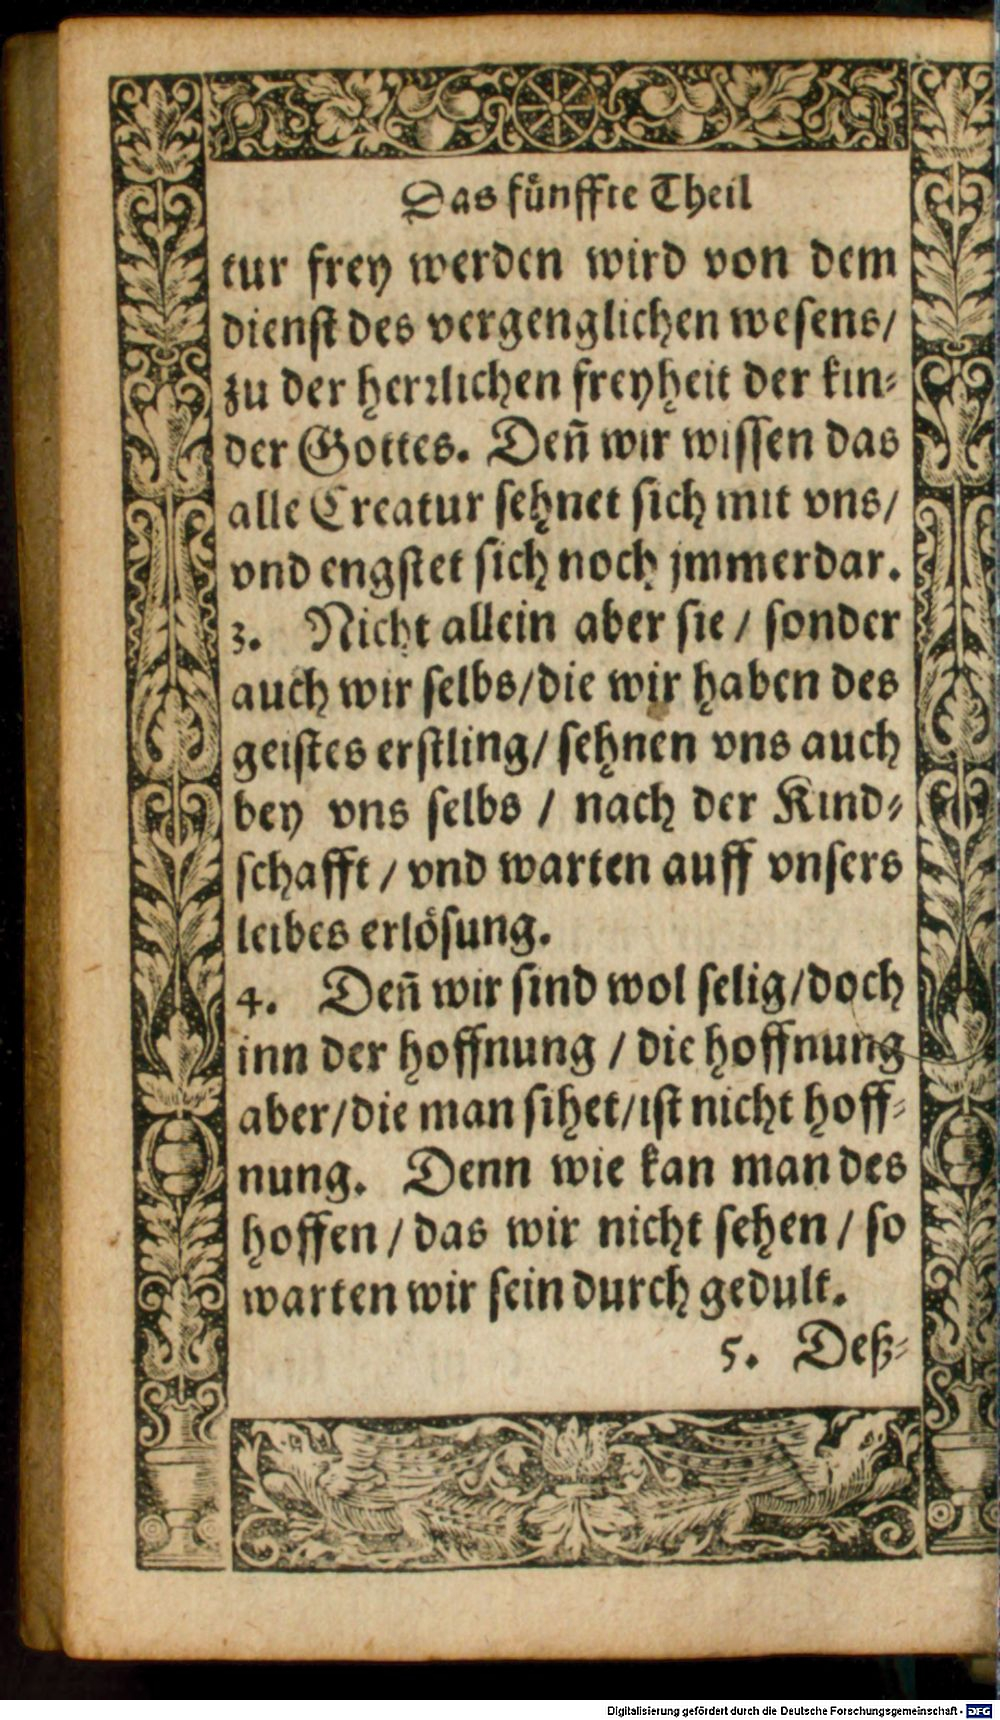 Das fünffte Theil
tur frey werden wird von dem
dienst des vergenglichen wesens/
zu der herrlichen freyheit der kin⸗
der Gottes. Deñ wir wissen das
alle Creatur sehnet sich mit vns/
vnd engstet sich noch jmmerdar.
3. Nicht allein aber sie / sonder
auch wir selbs/die wir haben des
geistes erstling/ sehnen vns auch
bey vns selbs / nach der Kind⸗
schafft / vnd warten auff vnsers
leibes erlösung.
4. Deñ wir sind wol selig/doch
inn der hoffnung / die hoffnung
aber/die man sihet/ist nicht hoff⸗
nung. Denn wie kan man des
hoffen / das wir nicht sehen / so
warten wir sein durch gedult.
5. Deß⸗
Digitalisierung gefördert durch die Deutsche Forschungsgemeinschaft - DFG